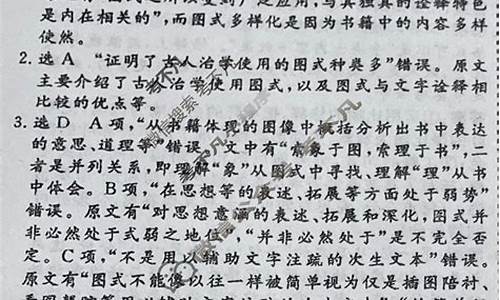 是内在相关的”,而图式多样化是因为书籍中的内容多样
使然。
2. 选A “证明了古人治学使用的图式种类多”错误。原文
主要介绍了古人治学使用图式,以及图式与文字诠释相
比较的优点等。
3. 选D A项,“从书籍体理的图像中概括分析出书中表达
的意思、道理等”错误,文中有“索象于图,索理于书”,二
者是并列关系,即理解“象”从图式中寻找、理解“理”从书
中体会。B项,“在思想等的表述、拓展等方面处于弱势”
错误。原文有“对思想意涵的表述、拓展和深化,图式并
非必然处于式弱之地位”,“并非必然处于”是不完全否
定。C项,“不是用以辅助文字注疏的次生文本”错误。
原文有“图式不能像以往一样被简单视为仅是插图陪衬、